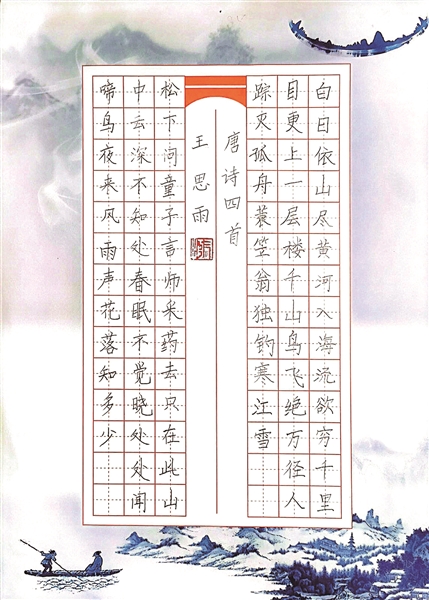 白日依山尽黄河入海流欲穷千里
目更上一层楼千山鸟飞绝万径人
踪灭孤舟蓑笠翁独钓寒江雪
唐诗四首
王思雨
松下问童子言师采药去只在此山
中云深不知处春眠不觉晓处处闻
啼鸟夜来风雨声花落知多少